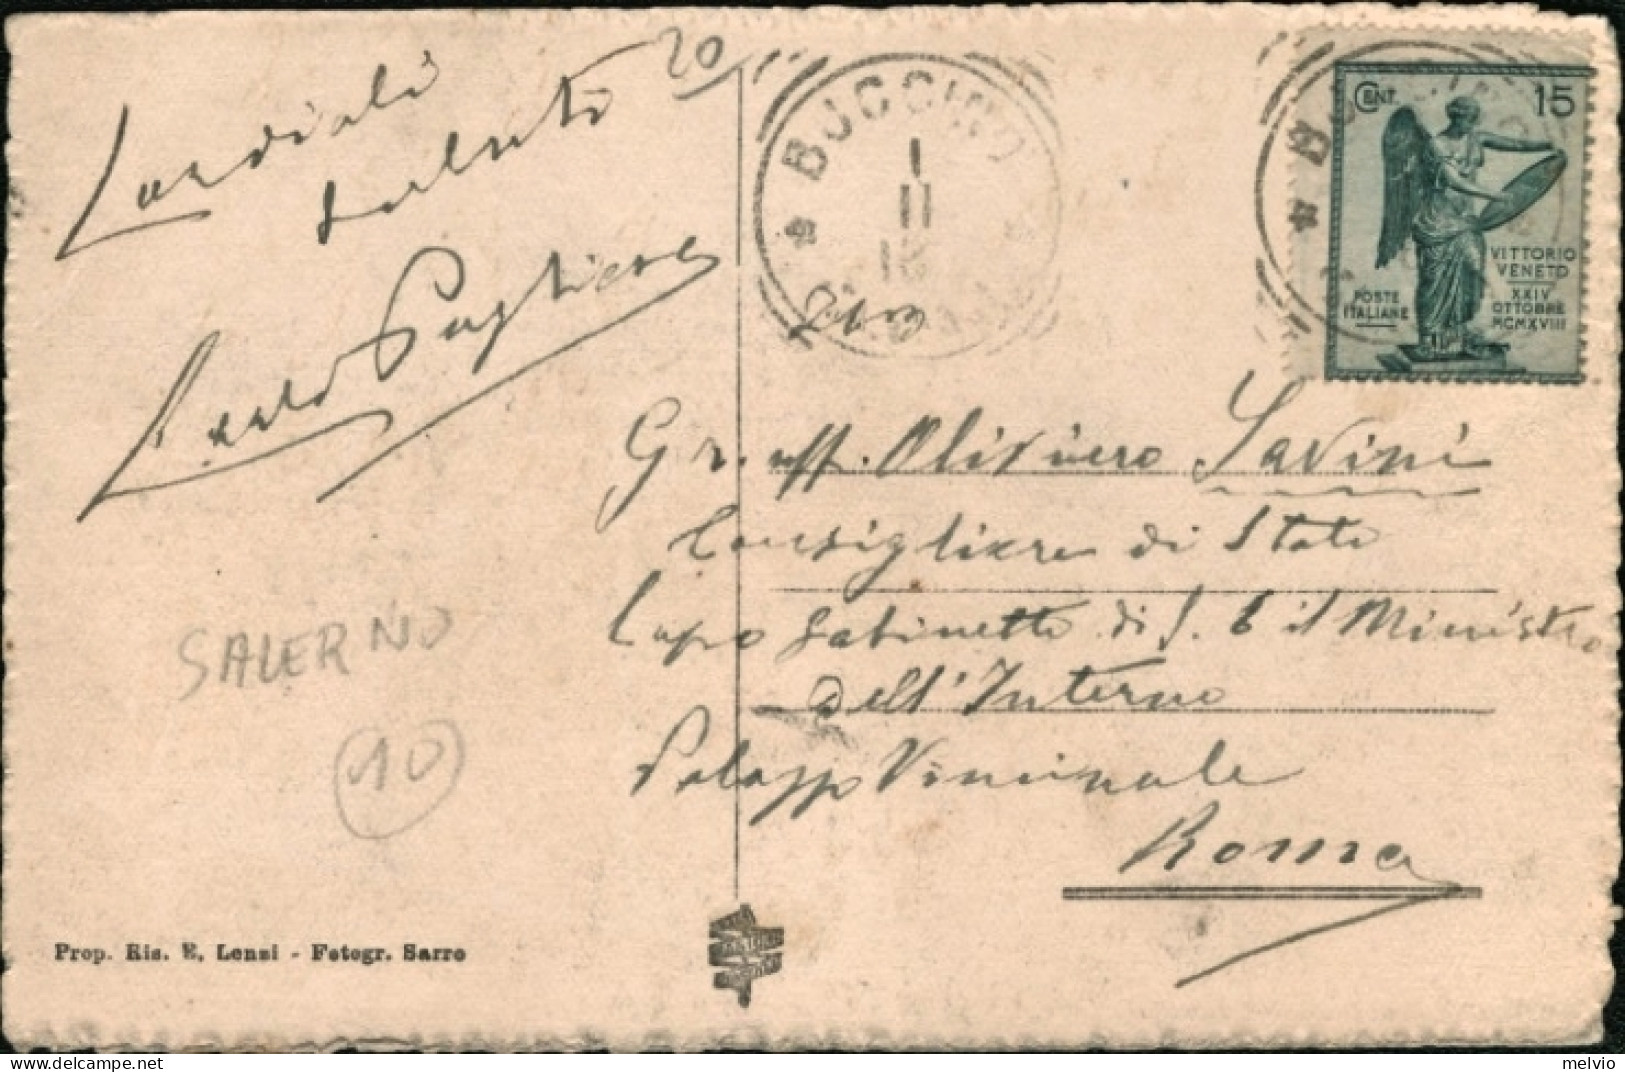 20
Cordiali
saluti
BUCCINO
1
11
CENT 15
VITTORIO
VENETO
XXIV
OTTOBRE
MCMXVIII
POSTE
ITALIANE
Gr. uff. Oliviero Savini
Consigliere di Stato
Capo Gabinetto di S. E il Ministro
dell'Interno
Palazzo Viminale
Roma
SALERNO
10
Prop. Ris. E. Lenzi - Fotogr. Sarro
melvio